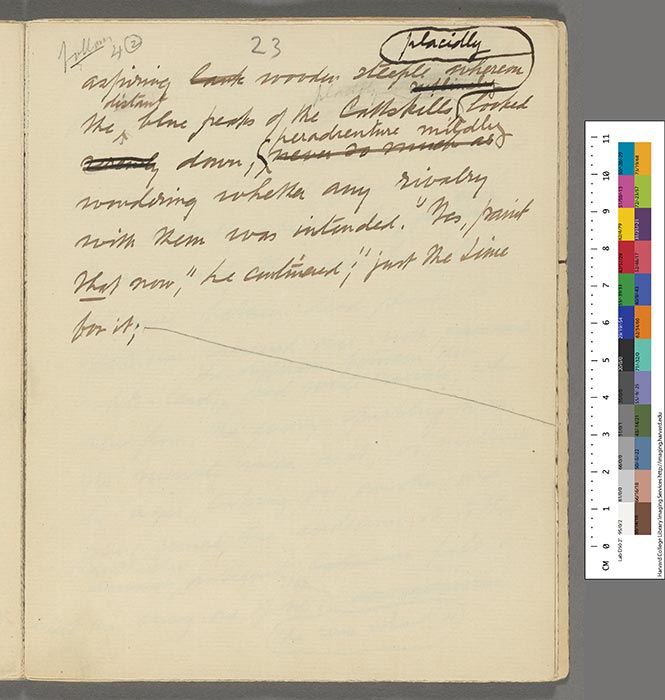 follow
4 ②
23
placidly
aspiring wooden steeple whereon
distant
the blue peaks of the Cattskills looked
peradventure mildly
down, never so much as
wondering whether any rivalry
with them was intended. "Yes, paint
that now," he continued; "just the time
for it;
CM 0 1 2 3 4 5 6 7 8 9 10 11
Harvard College Library Imaging Services http://imaging.harvard.edu